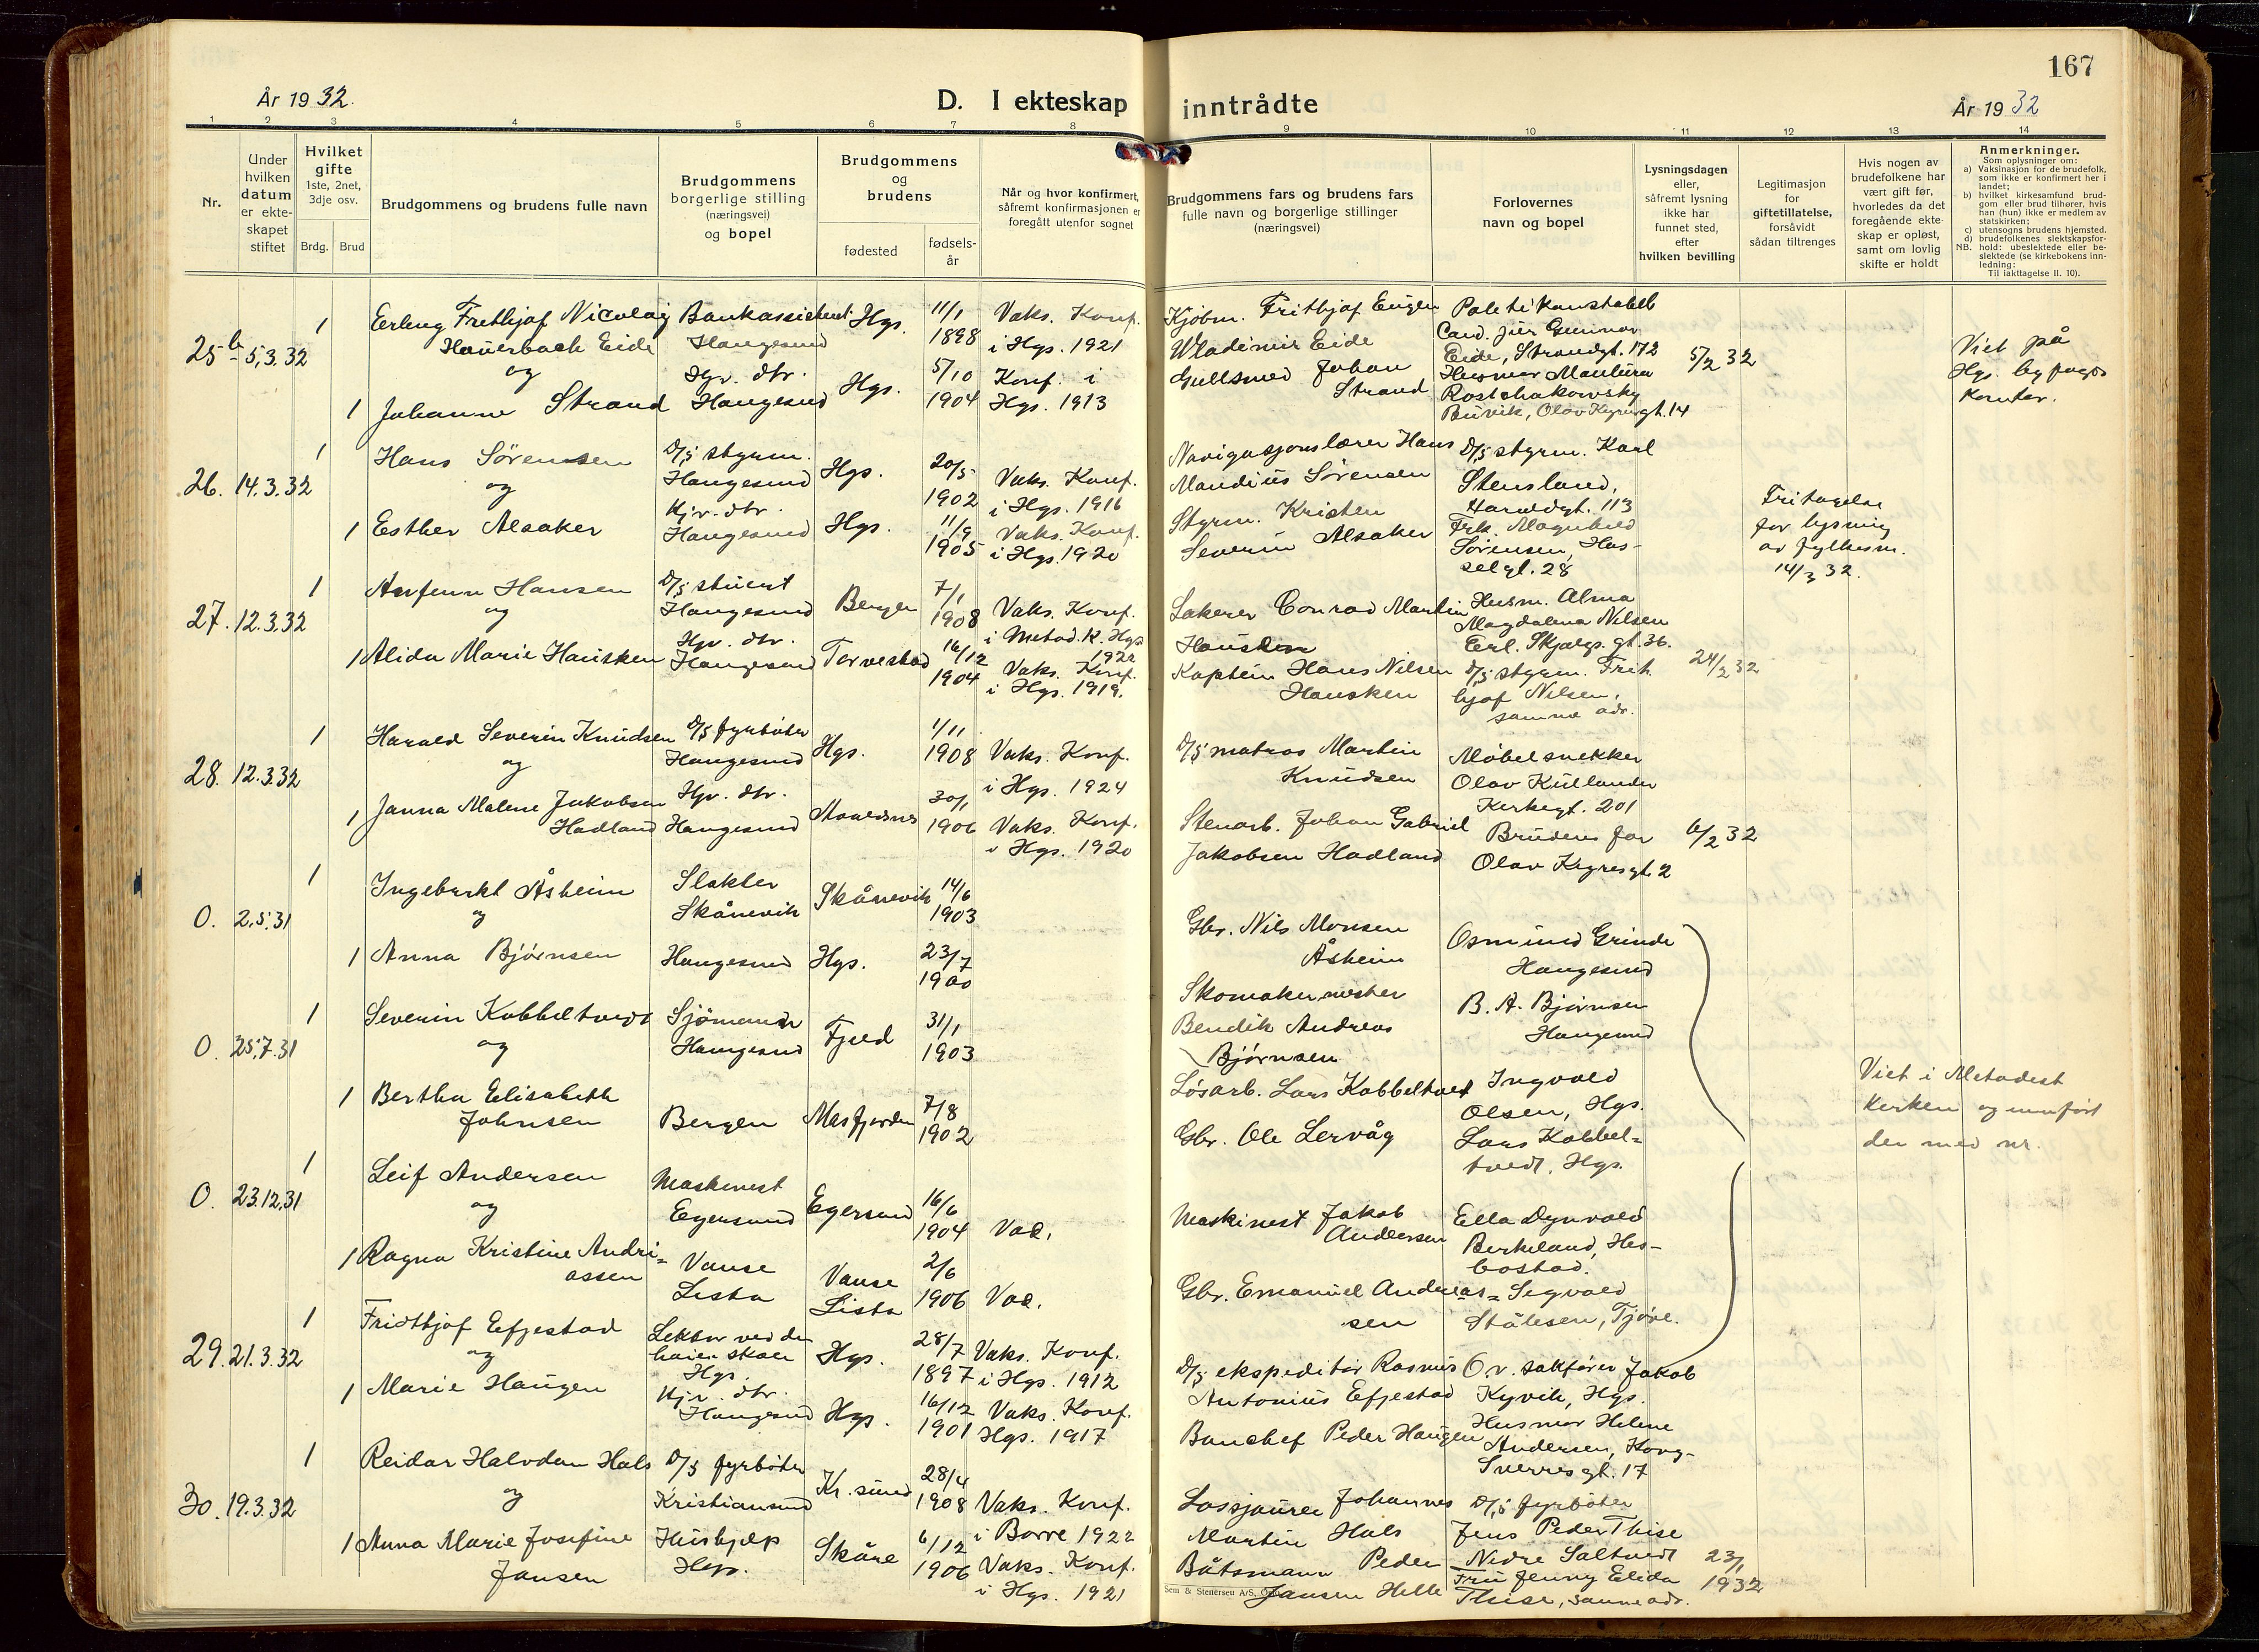 167
År 1932.
D. I ekteskap inntrådte
År 1932
1 2 3 4 5 6 7 8 9 10 11 12 13 14
Nr.
Under hvilken datum er ekteskapet stiftet
Hvilket gifte 1ste, 2net, 3dje osv.
Brdg. Brud
Brudgommens og brudens fulle navn
Brudgommens borgerlige stilling (næringsvei) og bopel
Brudgommens og brudens
fødested
fødsels-år
Når og hvor konfirmert, såfremt konfirmasjonen er foregått utenfor sognet
Brudgommens fars og brudens fars fulle navn og borgerlige stillinger (næringsvei)
Forlovernes navn og bopel
Lysningsdagen eller, såfremt lysning ikke har funnet sted, efter hvilken bevilling
Legitimasjon for giftetillatelse, forsåvidt sådan tiltrenges
Hvis nogen av brudefolkene har vært gift før, hvorledes da det foregående ekteskap er opløst, samt om lovlig skifte er holdt
Anmerkninger.
Som oplysninger om:
a) Vaksinasjon for de brudefolk, som ikke er konfirmert her i landet;
b) hvilket kirkesamfund brudgom eller brud tilhører, hvis han (hun) ikke er medlem av statskirken;
c) utensogns brudens hjemsted.
d) brudefolkenes slektskapsforhold: ubeslektede eller beslektede (se kirkebokens innledning:
NB. Til iakttagelse II. 10).
25b 5.3.32
1 Erling Frithjof Nicolay Bankassistent Hgs. 11/1 Vaks. Konf.
Hauerbach Eide Haugesund 1898 i Hgs. 1921
og Hjv. dtr. Hgs. 5/10 Konf. i
1 Johanne Strand Haugesund 1904 Hgs. 1913
Kjøbm. Frithjof Eugen
Wladimir Eide
Gullsmed Johan
Strand
Politikonstabel
Cand. jur Gunnar
Eide, Strandgt. 172
Husmor Manlura
Rostchakowsky
Buvik, Olav Kyrresgt. 14
5/2 32
Viet på
Hgs. byfogds
kontor.
26. 14.3.32
1 Hans Sørensen D/S styrm. Hgs. 20/5 Vaks. Konf.
og Haugesund 1902 i Hgs. 1916
1 Esther Alsaker Hjv. dtr. Haugesund Hgs. 11/9 Vaks. Konf.
1905 i Hgs. 1920
Navigasjonslærer Hans
Mandius Sørensen
Styrm. Kristen
Severin Alsaker
D/S styrm. Karl
Stensland,
Haraldgt. 113
Frk. Magnhild
Sørensen, Has-
selgt. 28
Fritagelse
for lysning
av fylkesm.
14/3 32.
27. 12.3.32
1 Arnfinn Hansen D/S stuert Bergen 7/1 Vaks. Konf.
og Haugesund 1908 i Metod. K. Hgs.
1 Alida Marie Hausken Hjv. dtr. Haugesund Torvestad 16/12 1922 Vaks. Konf.
1904 i Hgs. 1919.
Lakerer Conrad Martin
Kaptein Hans Nilsen
Hausken
Husm. Alma
Magdalena Nilsen
Erl. Skjalgs. gt. 36.
D/S styrm. Frit-
hjof Nilsen,
samme adr.
24/2 32
28. 12.3.32
1 Harald Severin Knudsen D/S fyrbøter Hgs. 1/11
og Haugesund 1908 Vaks. Konf. i Hgs. 1924
1 Janna Malene Jakobsen Hjv. dtr. Avaldsnes 30/1
Hadland Haugesund 1906 Vaks. Konf. i Hgs. 1920
D/S matros Martin
Knudsen
Stenarb. Johan Gabriel
Jakobsen Hadland
Møbelsnekker
Olav Kullander
Kirkegt. 201
Brudens far
Olav Kyrresgt. 2
6/2 32
0. 2.5.31
1 Ingebrikt Åsheim Slakter Skånevik 14/6
og Skånevik 1903
1 Anna Bjørnsen Haugesund Hgs. 23/7 1900
Gbr. Nils Monsen
Åsheim
Skomakermester
Bendik Andreas
Bjørnsen
Osmund Grinde
Haugesund
B. A. Bjørnsen
Haugesund
0. 25.7.31
1 Severin Kobbeltvedt Sjømann Fjeld 31/1
og Haugesund 1903
1 Bertha Elisabeth
Johnsen Bergen Masfjorden 7/8 1902
Løsarb. Lars Kobbeltvedt
Gbr. Ole Lervåg
Ingvald
Olsen, Hgs.
Lars Kobbel=
tvedt, Hgs.
Viet i Metodist
kirken og innført
der med nr.
0. 23.12.31
1 Leif Andersen Maskinist Egersund 16/6
og Egersund 1904 Vac.
1 Ragna Kristine Andri=
assen Vanse Lista Vanse Lista 2/6 1906 Vac.
Maskinist Jakob
Andersen
Gbr. Emanuel Andreas=
sen
Ella Dynvald
Berkeland, Hes-
bostad.
Sigvald
Stålesen, Tjøre.
29. 21.3.32
1 Fridthjof Efjestad Lektor ved den Hgs. 28/7 Vaks. Konf.
og høiere skole Hgs. 1897 i Hgs. 1912
1 Marie Haugen Hjv. dtr. Haugesund Hgs. 16/12 Vaks. Konf.
1901 Hgs. 1917
D/S ekspeditør Rasmus
Antonius Efjestad
Banchef Peder Haugen
O.r. sakfører Jakob
Kyvik, Hgs.
Husmor Helene
Andersen, Kong-
Sverresgt. 17
30. 19.3.32
1 Reidar Halvdan Hals D/S fyrbøter Kr. sund 28/4
og Kristiansund 1908 Vaks. Konf. i Borre 1922
1 Anna Marie Josefine Hushjelp Skåre 6/12
Jansen Hgs. 1906 Vaks. Konf. i Hgs. 1921
Lossjourer Johannes
Martin Hals
Båtsmann Peder
Jansen Helle
D/S fyrbøter
Jens Peder Thise
Nedre Saltveit
Fru Jenny Elida
Thise, samme adr.
23/1
1932
Sem & Stenersen A/S, Oslo